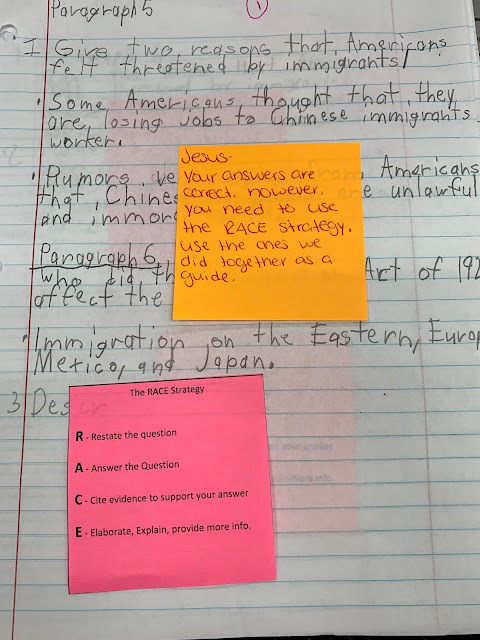 Paragraph 5
1
1 Give two reasons that, Americans
felt threatened by immigrants/
• Some Americans, thought that, they
are, losing jobs to Chinese immigrants
worker.
• Rumors, Americans
that, Chine are unlawful
and immor
Jesus-
Your answers are
correct. however,
you need to use
the RACE strategy.
use the ones we
did together as a
guide.
Paragraph 6
Who did th Act of 192
affect the
• Immigration on the Eastern, Europ
Mexico, and Japan.
3 Descr
The RACE Strategy
R - Restate the question
A - Answer the Question
C - Cite evidence to support your answer
E - Elaborate, Explain, provide more info.